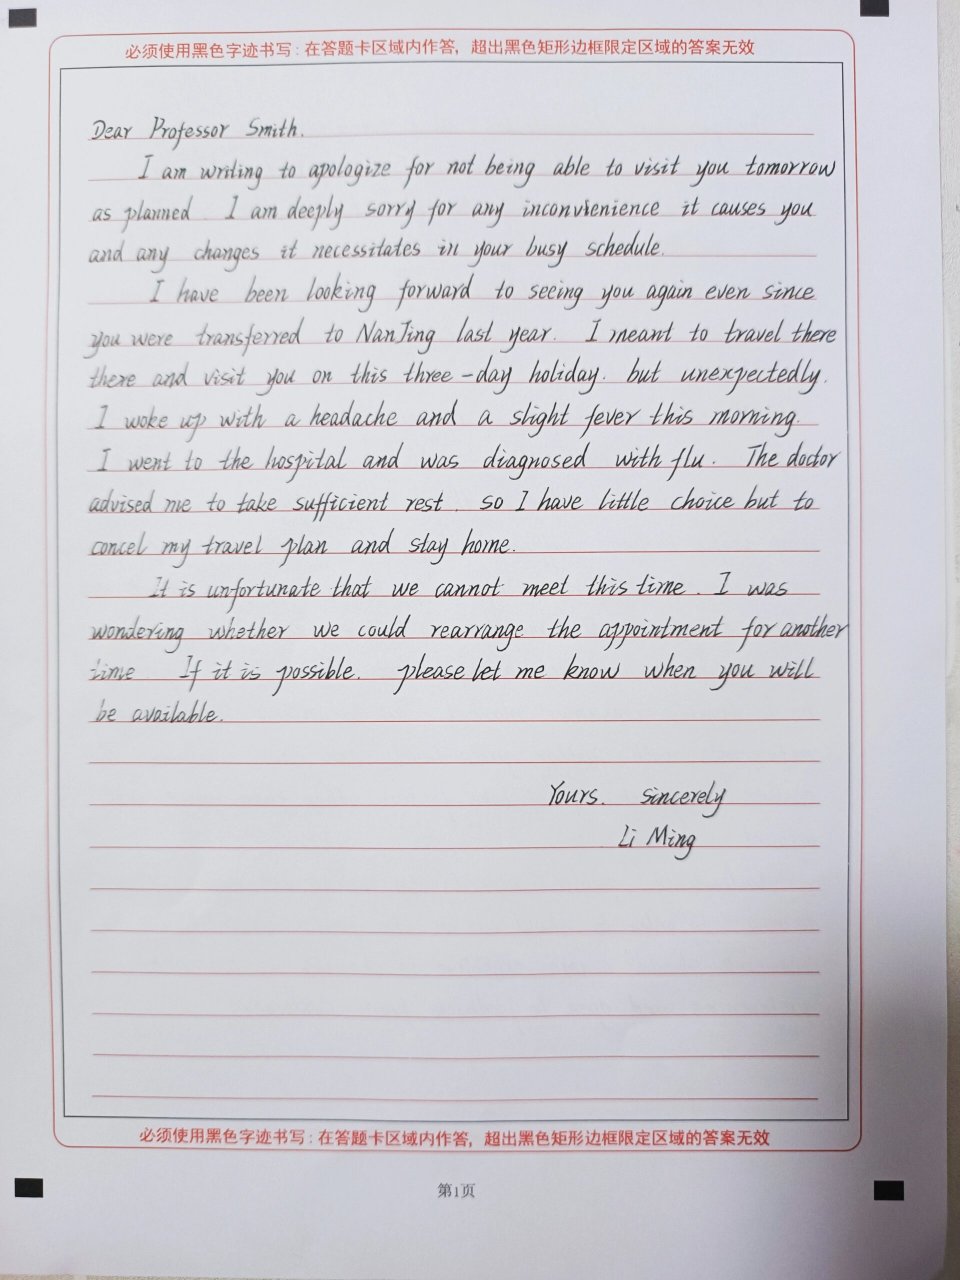 必须使用黑色字迹书写:在答题卡区域内作答，超出黑色矩形边框限定区域的答案无效
Dear Professor Smith.
I am writing to apologize for not being able to visit you tomorrow
as planned. I am deeply sorry for any inconvienience it causes you
and any changes it necessitates in your busy schedule.
I have been looking forward to seeing you again even since
you were transferred to NanJing last year. I meant to travel there
there and visit you on this three-day holiday. but unexpectedly.
I woke up with a headache and a slight fever this morning.
I went to the hospital and was diagnosed with flu. The doctor
advised me to take sufficient rest. so I have little choice but to
concel my travel plan and stay home.
It is unfortunate that we cannot meet this time. I was
wondering whether we could rearrange the appointment for another
time If it is possible. please let me know when you will
be available.
Yours. sincerely
Li Ming
必须使用黑色字迹书写:在答题卡区域内作答，超出黑色矩形边框限定区域的答案无效
第1页